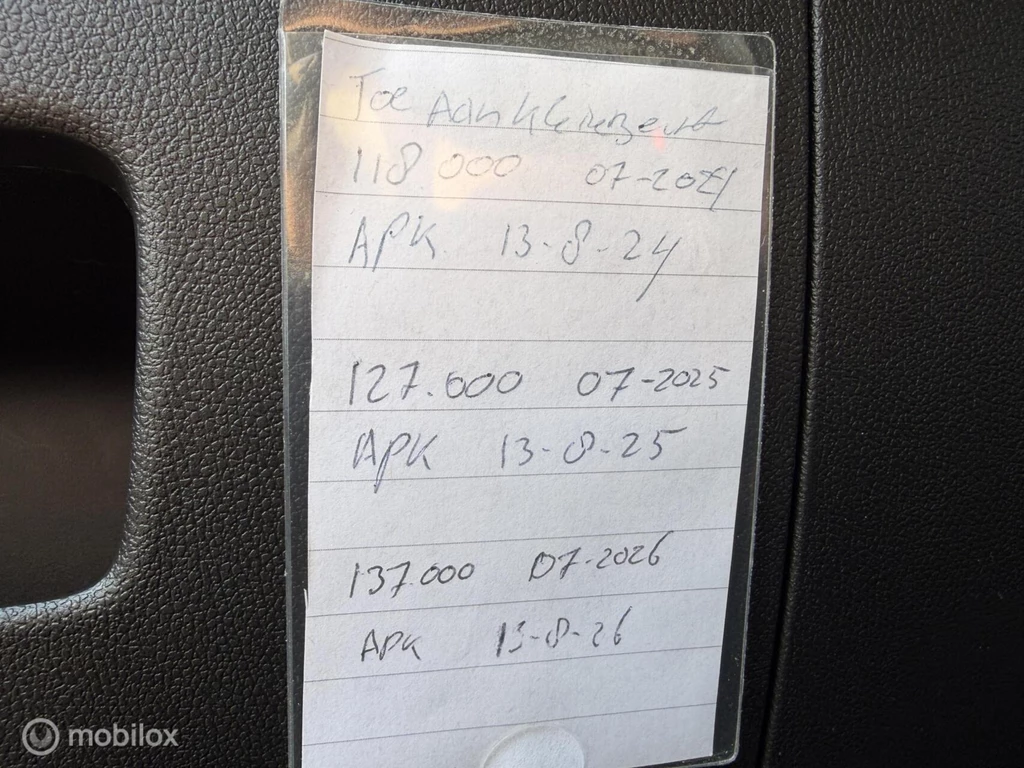 Toe Aan kleinbeurt
118.000 07-2024
APK 13-8-24
127.000 07-2025
APK 13-8-25
137.000 07-2026
APK 13-8-26
mobilox